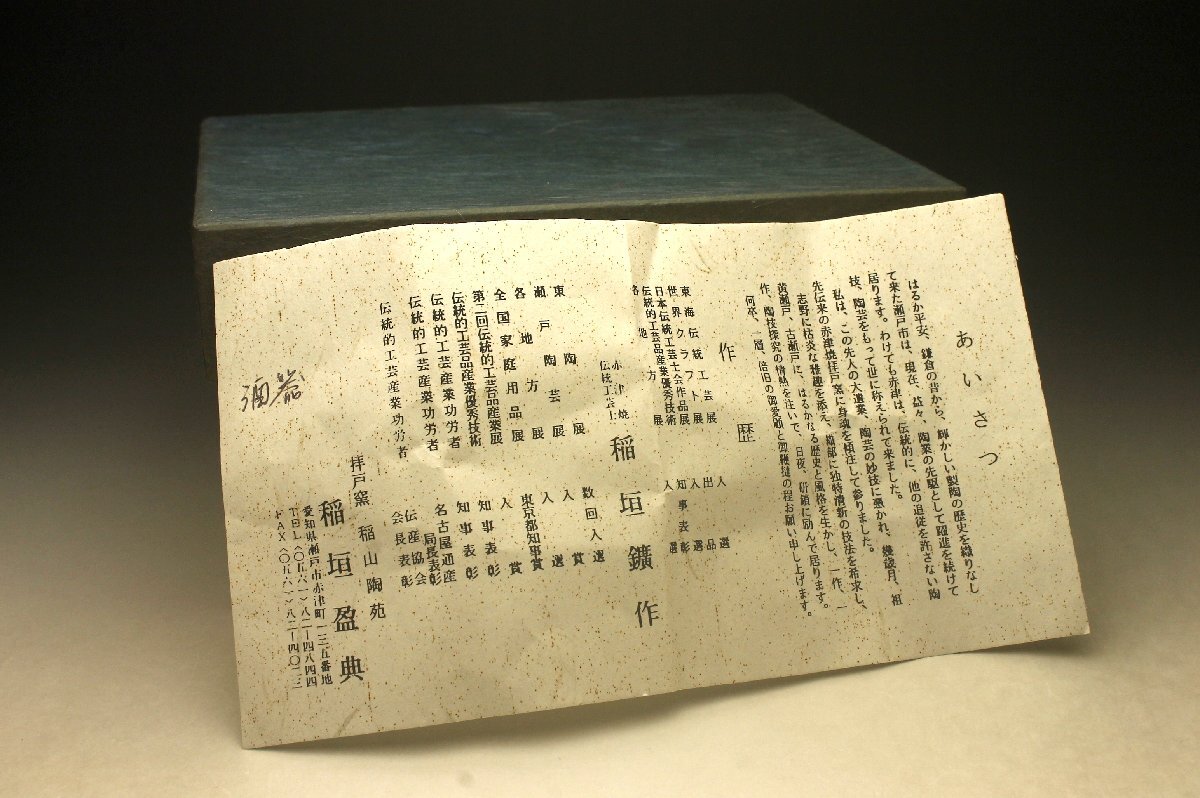 あいさつ
はるか平安、鎌倉の昔から、輝かしい製陶の歴史を織りなし
て来た瀬戸市は、現在、益々、陶業の先駆として躍進を続けて
居ります。わけても赤津は、伝統的に、他の追従を許さない陶
技、陶芸をもって世に称えられて来ました。
私は、この先人の大遺業、陶芸の妙技に憑かれ、幾歳月、祖
先伝来の赤津焼拝戸窯に身魂を傾注して参りました。
志野に枯淡な雅趣を添え、織部に独特清新の技法を希求し、
黄瀬戸、古瀬戸に、はるかなる歴史と風格を生かし、一作、一
作、陶技探究の情熱を注いで、日夜、研鑽に励んで居ります。
何卒、一層、倍旧の御愛顧と御鞭撻の程お願い申し上げます。
作歴
東海伝統工芸展 入選
世界クラフト展 出品
日本伝統工芸士会作品展 入選
伝統的工芸品産業優秀技術 知事表彰
各地方展 入選
赤津焼
伝統工芸士
稲垣鑛作
東陶展 数回入選
瀬戸陶芸展 入賞
各地方展 入選
全国家庭用品展 東京都知事賞
第二回伝統的工芸品産業展 入賞
伝統的工芸品産業優秀技術 知事表彰
伝統的工芸産業功労者 知事表彰
伝統的工芸産業功労者 名古屋通産局長表彰
伝統的工芸産業功労者 伝産協会会長表彰
拝戸窯 稲山陶苑
稲垣盈典
愛知県瀬戸市赤津町一三五番地
TEL(〇五六一)八二ー四八四四
FAX(〇五六一)八二ー四〇二二
酒器